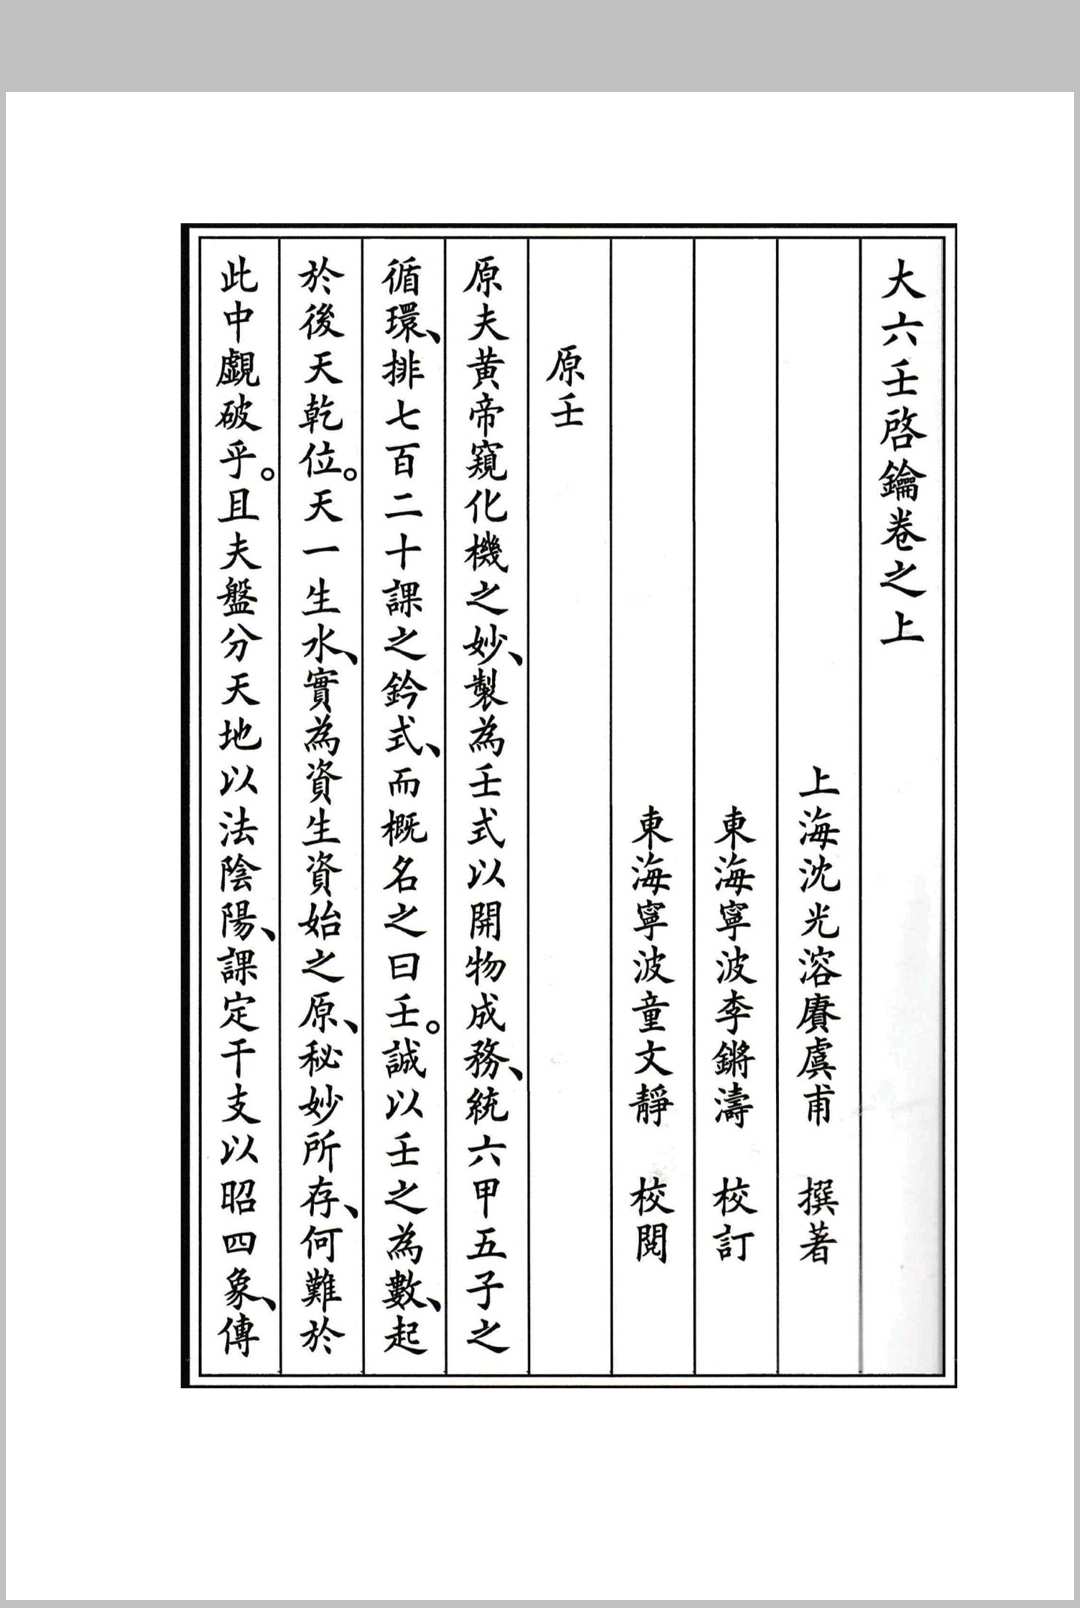 大六壬啓鑰卷之上
上海沈光溶賡虞甫　撰著
東海寧波李鏘濤　校訂
東海寧波童文靜　校閱
原壬
原夫黃帝窺化機之妙、製為壬式以開物成務、統六甲五子之
循環、排七百二十課之鈐式、而概名之曰壬。誠以壬之為數、起
於後天乾位。天一生水、實為資生資始之原、秘妙所存、何難於
此中覷破乎。且夫盤分天地以法陰陽、課定干支以昭四象、傳